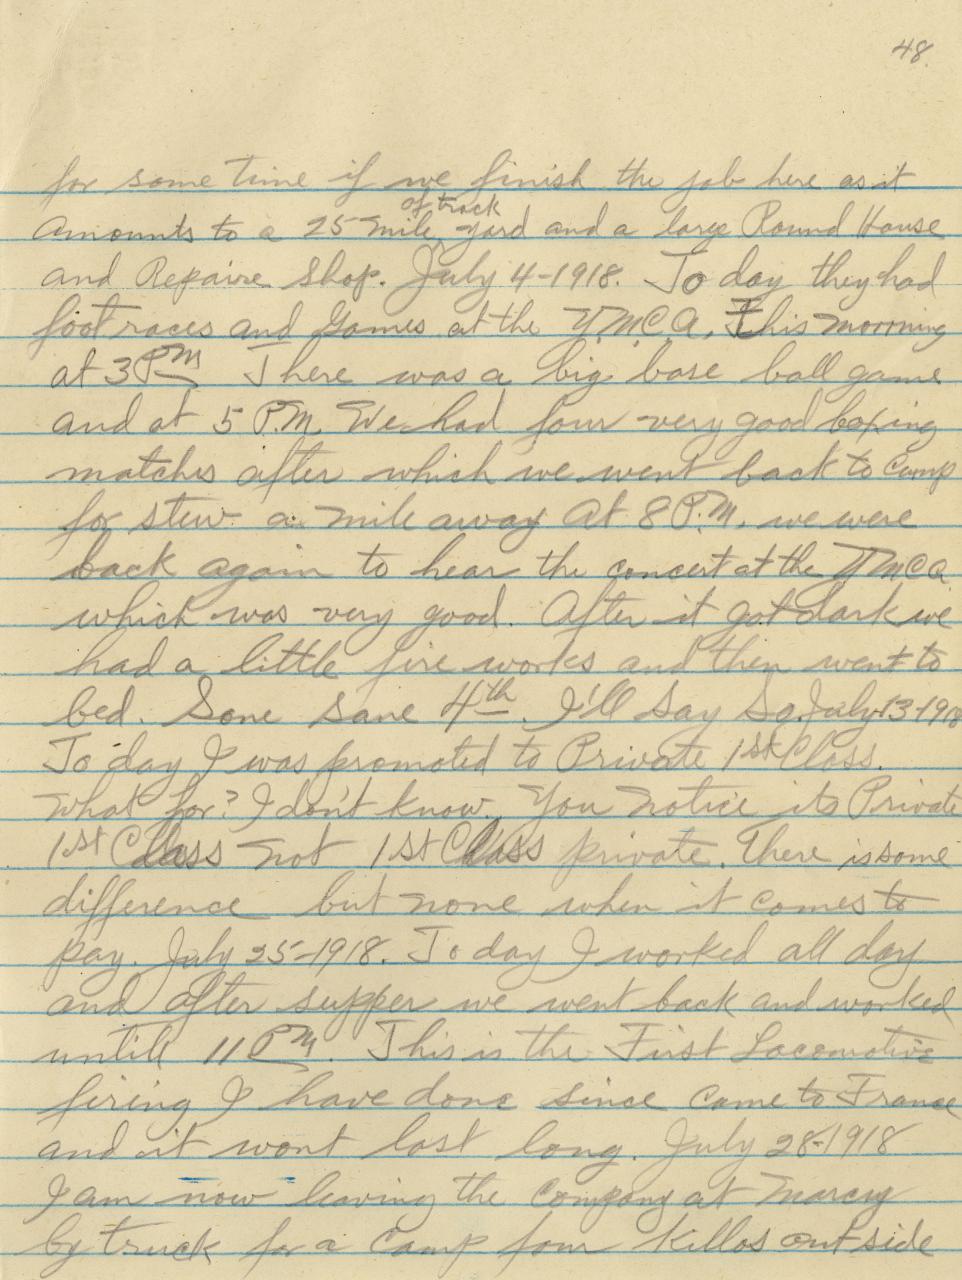 48.
for some time if we finish the job here as it
of track
amounts to a 25 mile yard and a large Round House
and Repaire Shop. July 4-1918. To day they had
foot races and Games at the Y.M.C.A. This morning
at 3 PM There was a big base ball game
and at 5 P.M. We had four very good boxing
matches after which we went back to Camp
for stew a mile away At 8 P.M. we were
back again to hear the concert at the YMCA
which was very good. After it got dark we
had a little fire works and then went to
bed. Some sane 4th. I'll Say So. July 13-1918
To day I was promoted to Private 1st Class.
What for? I don't know. You notice its Private
1st Class not 1st Class private. There is some
difference but none when it comes to
pay. July 25-1918. To day I worked all day
and after supper we went back and worked
untill 11 PM. This is the First Locomotive
firing I have done since came to France
and it wont last long. July 28-1918
I am now leaving the Company at Marcy
by truck for a Camp four Killos outside